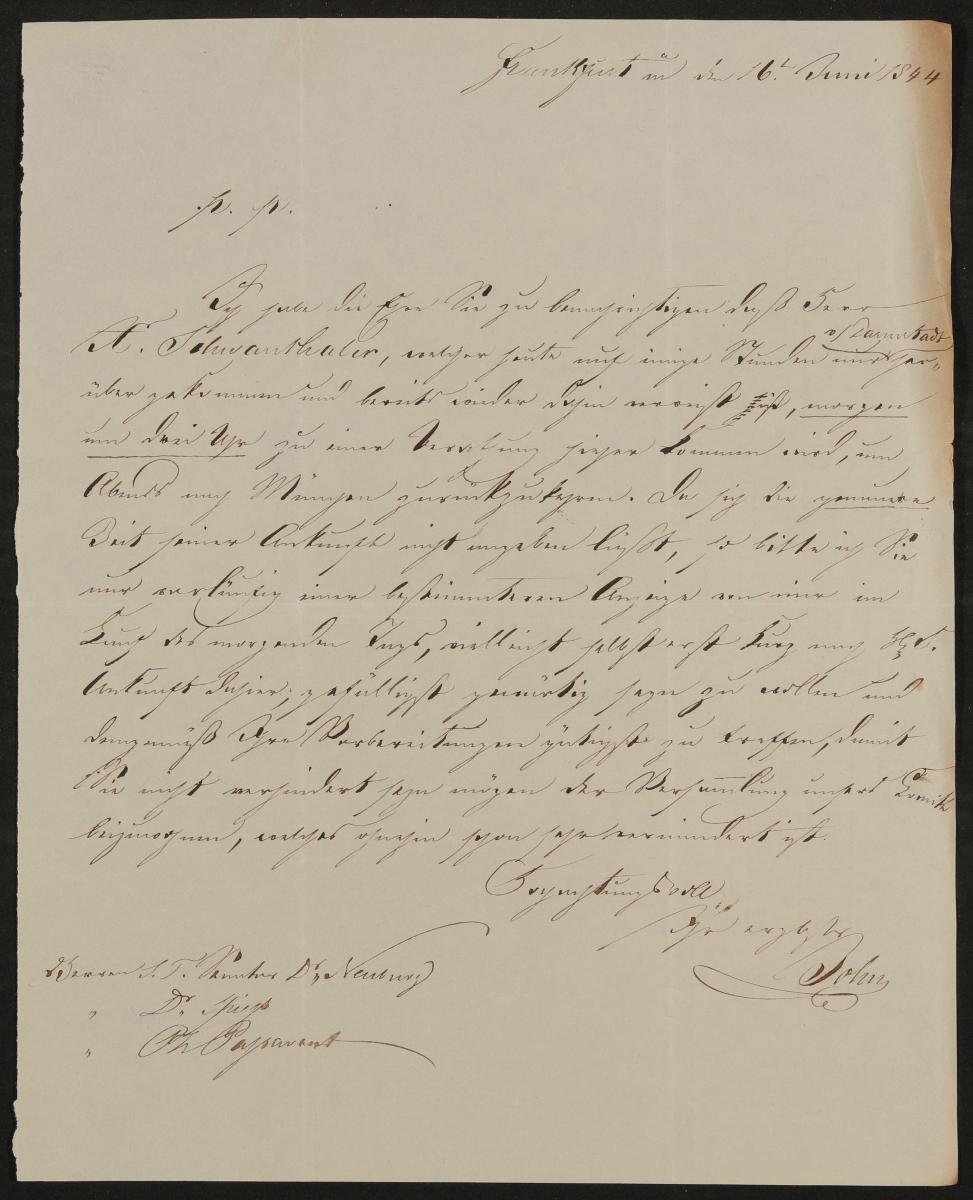 Frankfurt a/M den 16t. Juni 1844
p. p.
Ich habe die Ehre Sie zu benachrichtigen daß Herr
X. Schwanthaler, welcher heute auf einige Stunden nur v/ Darmstadt her=
über gekommen und bereits wieder dahin verreist ist, morgen
um drei Uhr zu einer Berathung hieher kommen wird, um
Abends nach München zurückzukehren. Da sich die genauere
Zeit seiner Ankunft nicht angeben läßt, so bitte ich Sie
nur vorläufig einer bestimmteren Anzeige von mir im
Lauf des morgenden Tags, vielleicht selbst erst kurz nach H. S.
Ankunft dahier, gefälligst gewärtig seyn zu wollen und
demgemäß Ihre Vorbereitungen gütigst zu treffen, damit
Sie nicht verhindert seyn mögen der Versammlung unsers Comité
beizuwohnen, welches ohnehin schon sehr vermindert ist.
Hochachtungsvoll
Ihr ergebster
John
Herren S. T. Senator Dr. Neuburg
" Dr. Spieß
" Ph. Passavant